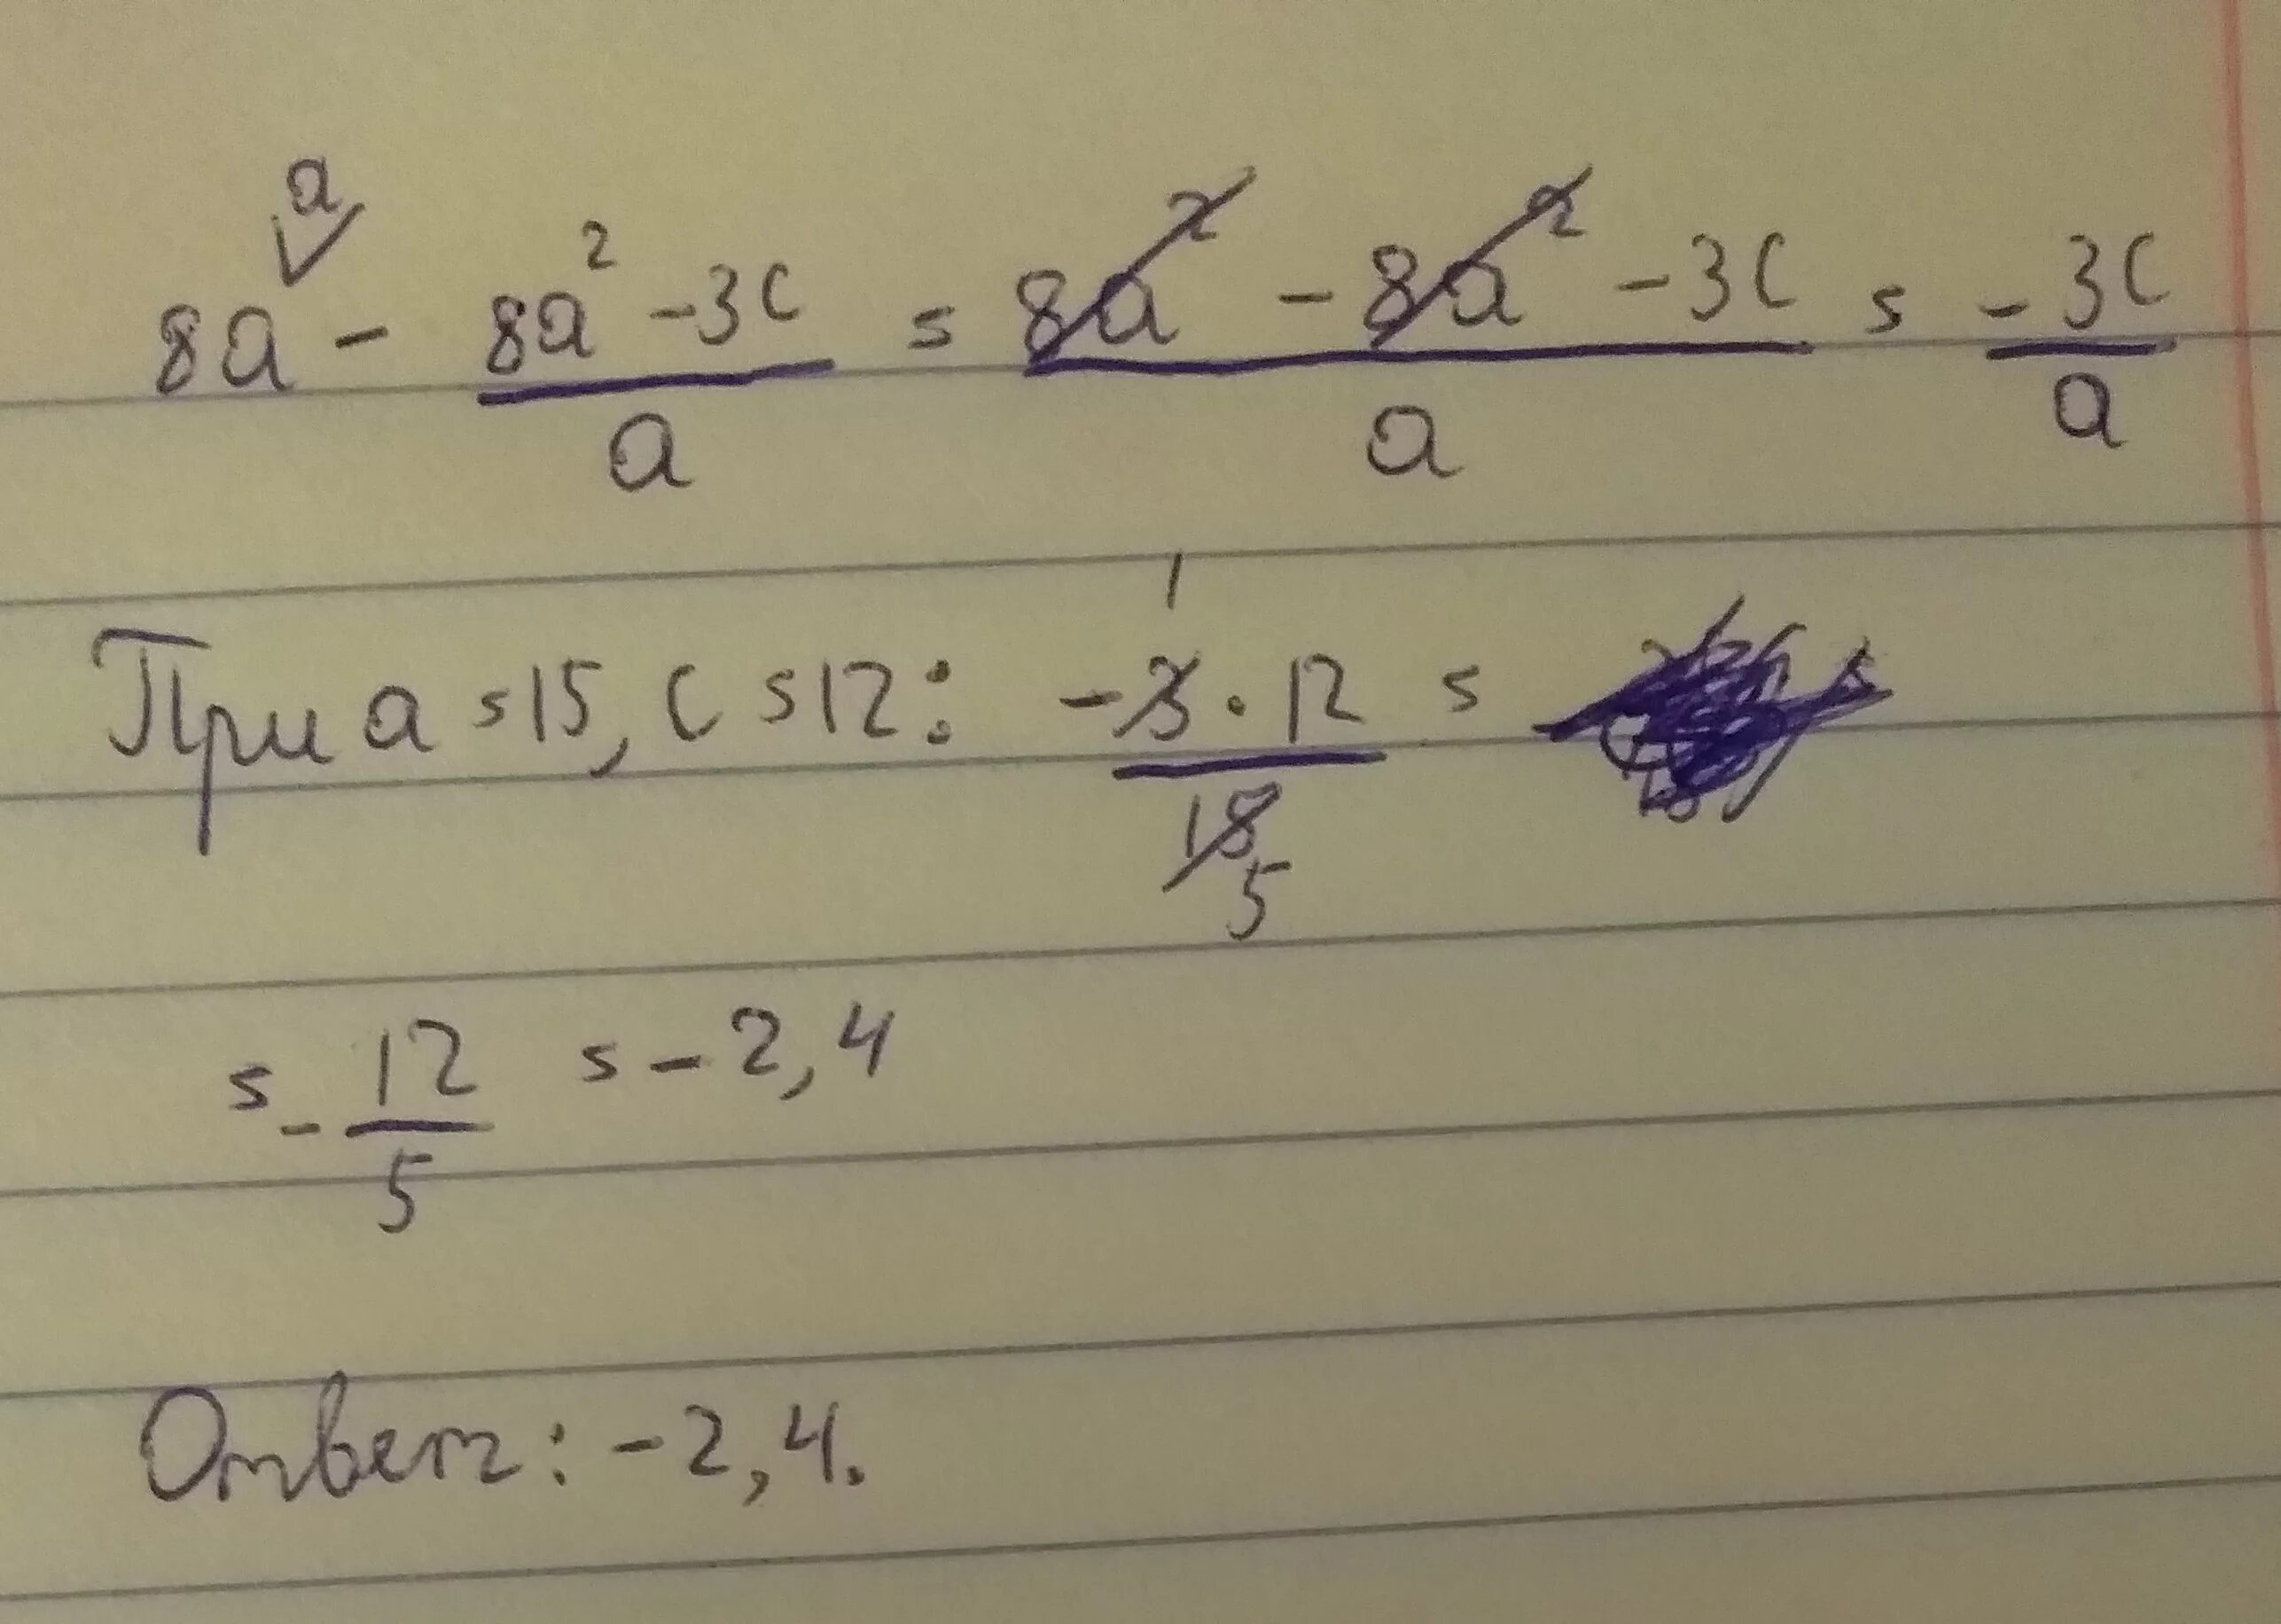 a
8a - (8a² - 3c)/a = (8a² - 8a² - 3c)/a = -3c/a
1
При a = 15, c = 12: -3 · 12/18 =
5
= - 12/5 = - 2,4
Ответ: -2,4.